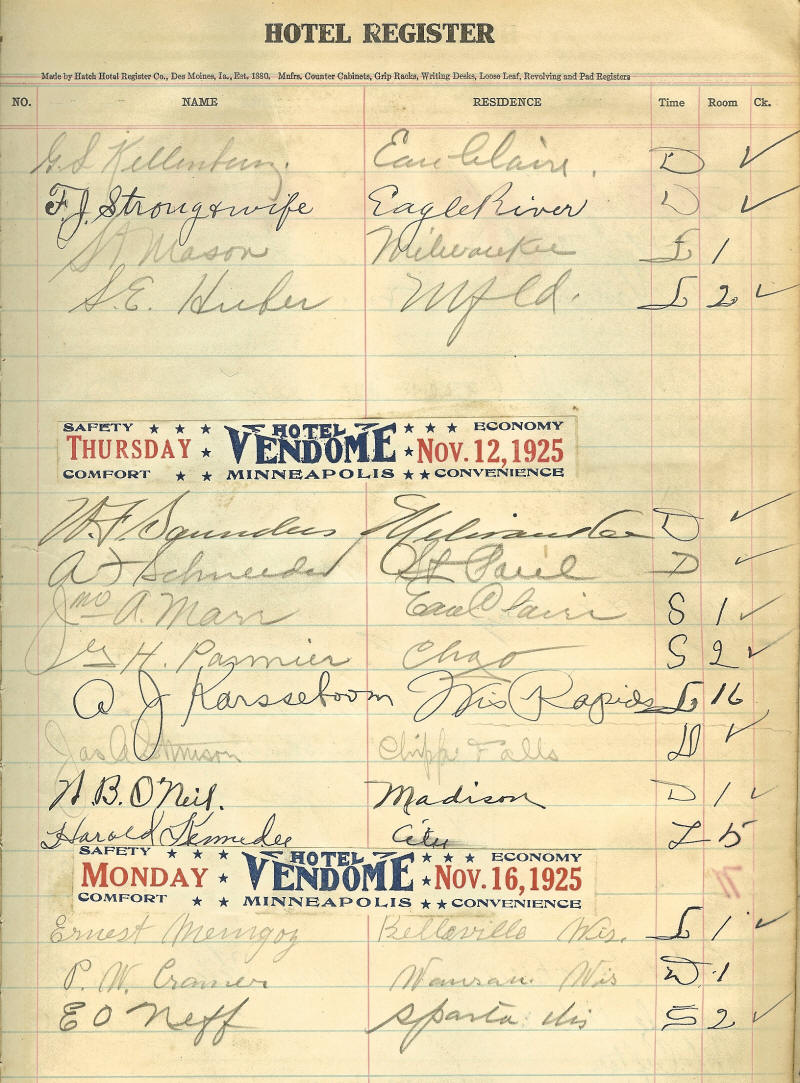 HOTEL REGISTER
Made by Hatch Hotel Register Co., Des Moines, Ia., Est. 1880. Mnfrs. Counter Cabinets, Grip Racks, Writing Desks, Loose Leaf, Revolving and Pad Registers
NO. NAME RESIDENCE Time Room Ck.
G. S. Kellenburg. Eau Claire. D ✓
F. J. Strong & wife Eagle River D ✓
Mason Milwaukee L 1
S. E. Huber Mfld. L 2 ✓
SAFETY ★ ★ ★ HOTEL ★ ★ ★ ECONOMY
THURSDAY ★ VENDOME ★ Nov. 12, 1925
COMFORT ★ ★ MINNEAPOLIS ★ ★ CONVENIENCE
W. F. Saunders Milwaukee D ✓
A F Schneider St Paul D ✓
Jno A. Marr Eau Claire S 1 ✓
H. Parmier Chgo S 2 ✓
A J Karsseboom Wis Rapids L 16
Jas A Chipp Falls D ✓
N. B. O'Neil. Madison D 1 ✓
Harold Kennedee City L 15
SAFETY ★ ★ ★ HOTEL ★ ★ ★ ECONOMY
MONDAY ★ VENDOME ★ Nov. 16, 1925
COMFORT ★ ★ MINNEAPOLIS ★ ★ CONVENIENCE
Ernest Belleville Wis. L 1 ✓
P. W. Cramer Wausau Wis D 1
E O Neff Sparta Wis S 2 ✓